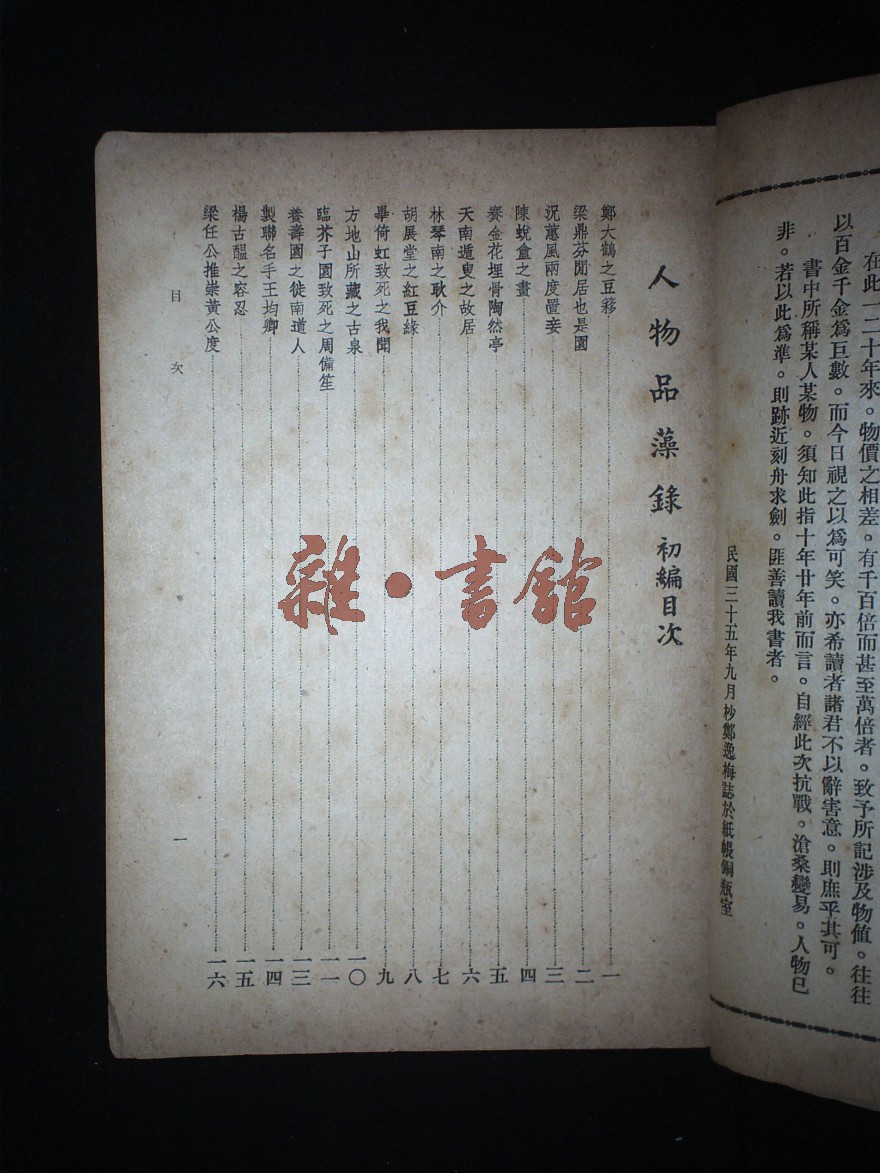 在此一二十年來。物價之相差。有千百倍而甚至萬倍者。致予所記涉及物値。往往
以百金千金爲巨數。而今日視之以爲可笑。亦希讀者諸君不以辭害意。則庶乎其可。
書中所稱某人某物。須知此指十年廿年前而言。自經此次抗戰。滄桑變易。人物已
非。若以此爲準。則跡近刻舟求劍。匪善讀我書者。
民國三十五年九月杪鄭逸梅誌於紙帳銅瓶室
人物品藻錄 初編目次
鄭大鶴之豆簃 一
梁鼎芬閒居也是園 二
況蕙風兩度置妾 三
陳蛻盦之畫 四
賽金花埋骨陶然亭 五
天南遯叟之故居 六
林琴南之耿介 七
胡展堂之紅豆緣 八
畢倚虹致死之我聞 九
方地山所藏之古泉 一〇
臨芥子園致死之周備笙 一一
養壽園之徙南道人 一三
製聯名手王均卿 一四
楊古醞之容忍 一五
梁任公推崇黃公度 一六
目次 一
雜·書館